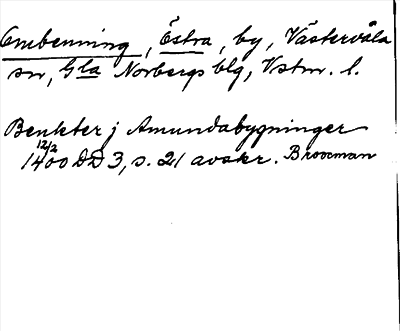 Embenning, Östra, by, Västervåla
sn, Gla Norbergs blg, Vstm. l.
Benkter j Amundabygninger
12/2
1400 DD 3, s. 21 avskr. Brooman